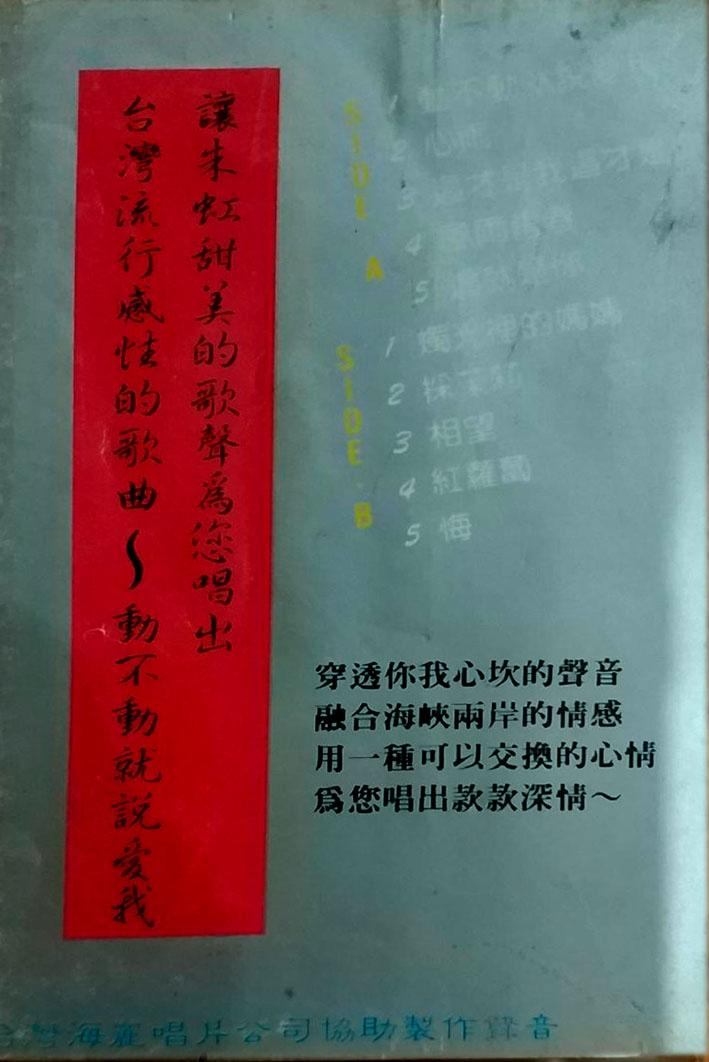 讓朱虹甜美的歌聲爲您唱出
台灣流行感性的歌曲～動不動就說愛我
SIDE A
1 動不動就說愛我
2 心雨
3
4
5
SIDE B
1 燭光裡的媽媽
2
3 相望
4 紅蘿蔔
5 悔
穿透你我心坎的聲音
融合海峽兩岸的情感
用一種可以交換的心情
爲您唱出款款深情～
台灣海麗唱片公司協助製作錄音